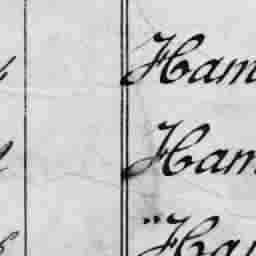 Ham
Ham
"Ham